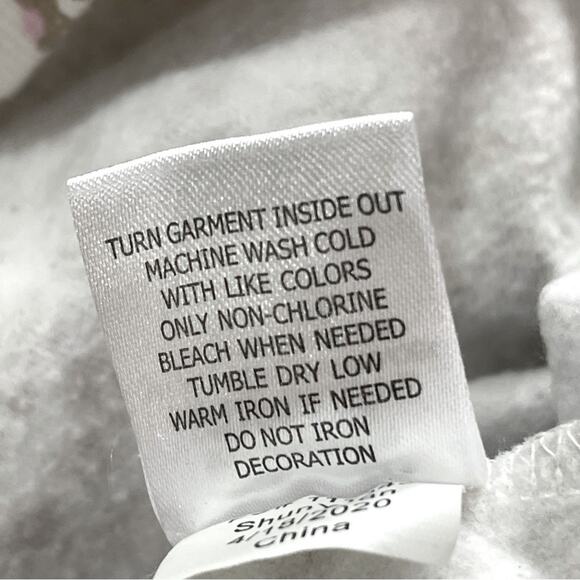 TURN GARMENT INSIDE OUT
MACHINE WASH COLD
WITH LIKE COLORS
ONLY NON-CHLORINE
BLEACH WHEN NEEDED
TUMBLE DRY LOW
WARM IRON IF NEEDED
DO NOT IRON
DECORATION
4/18/2020
China